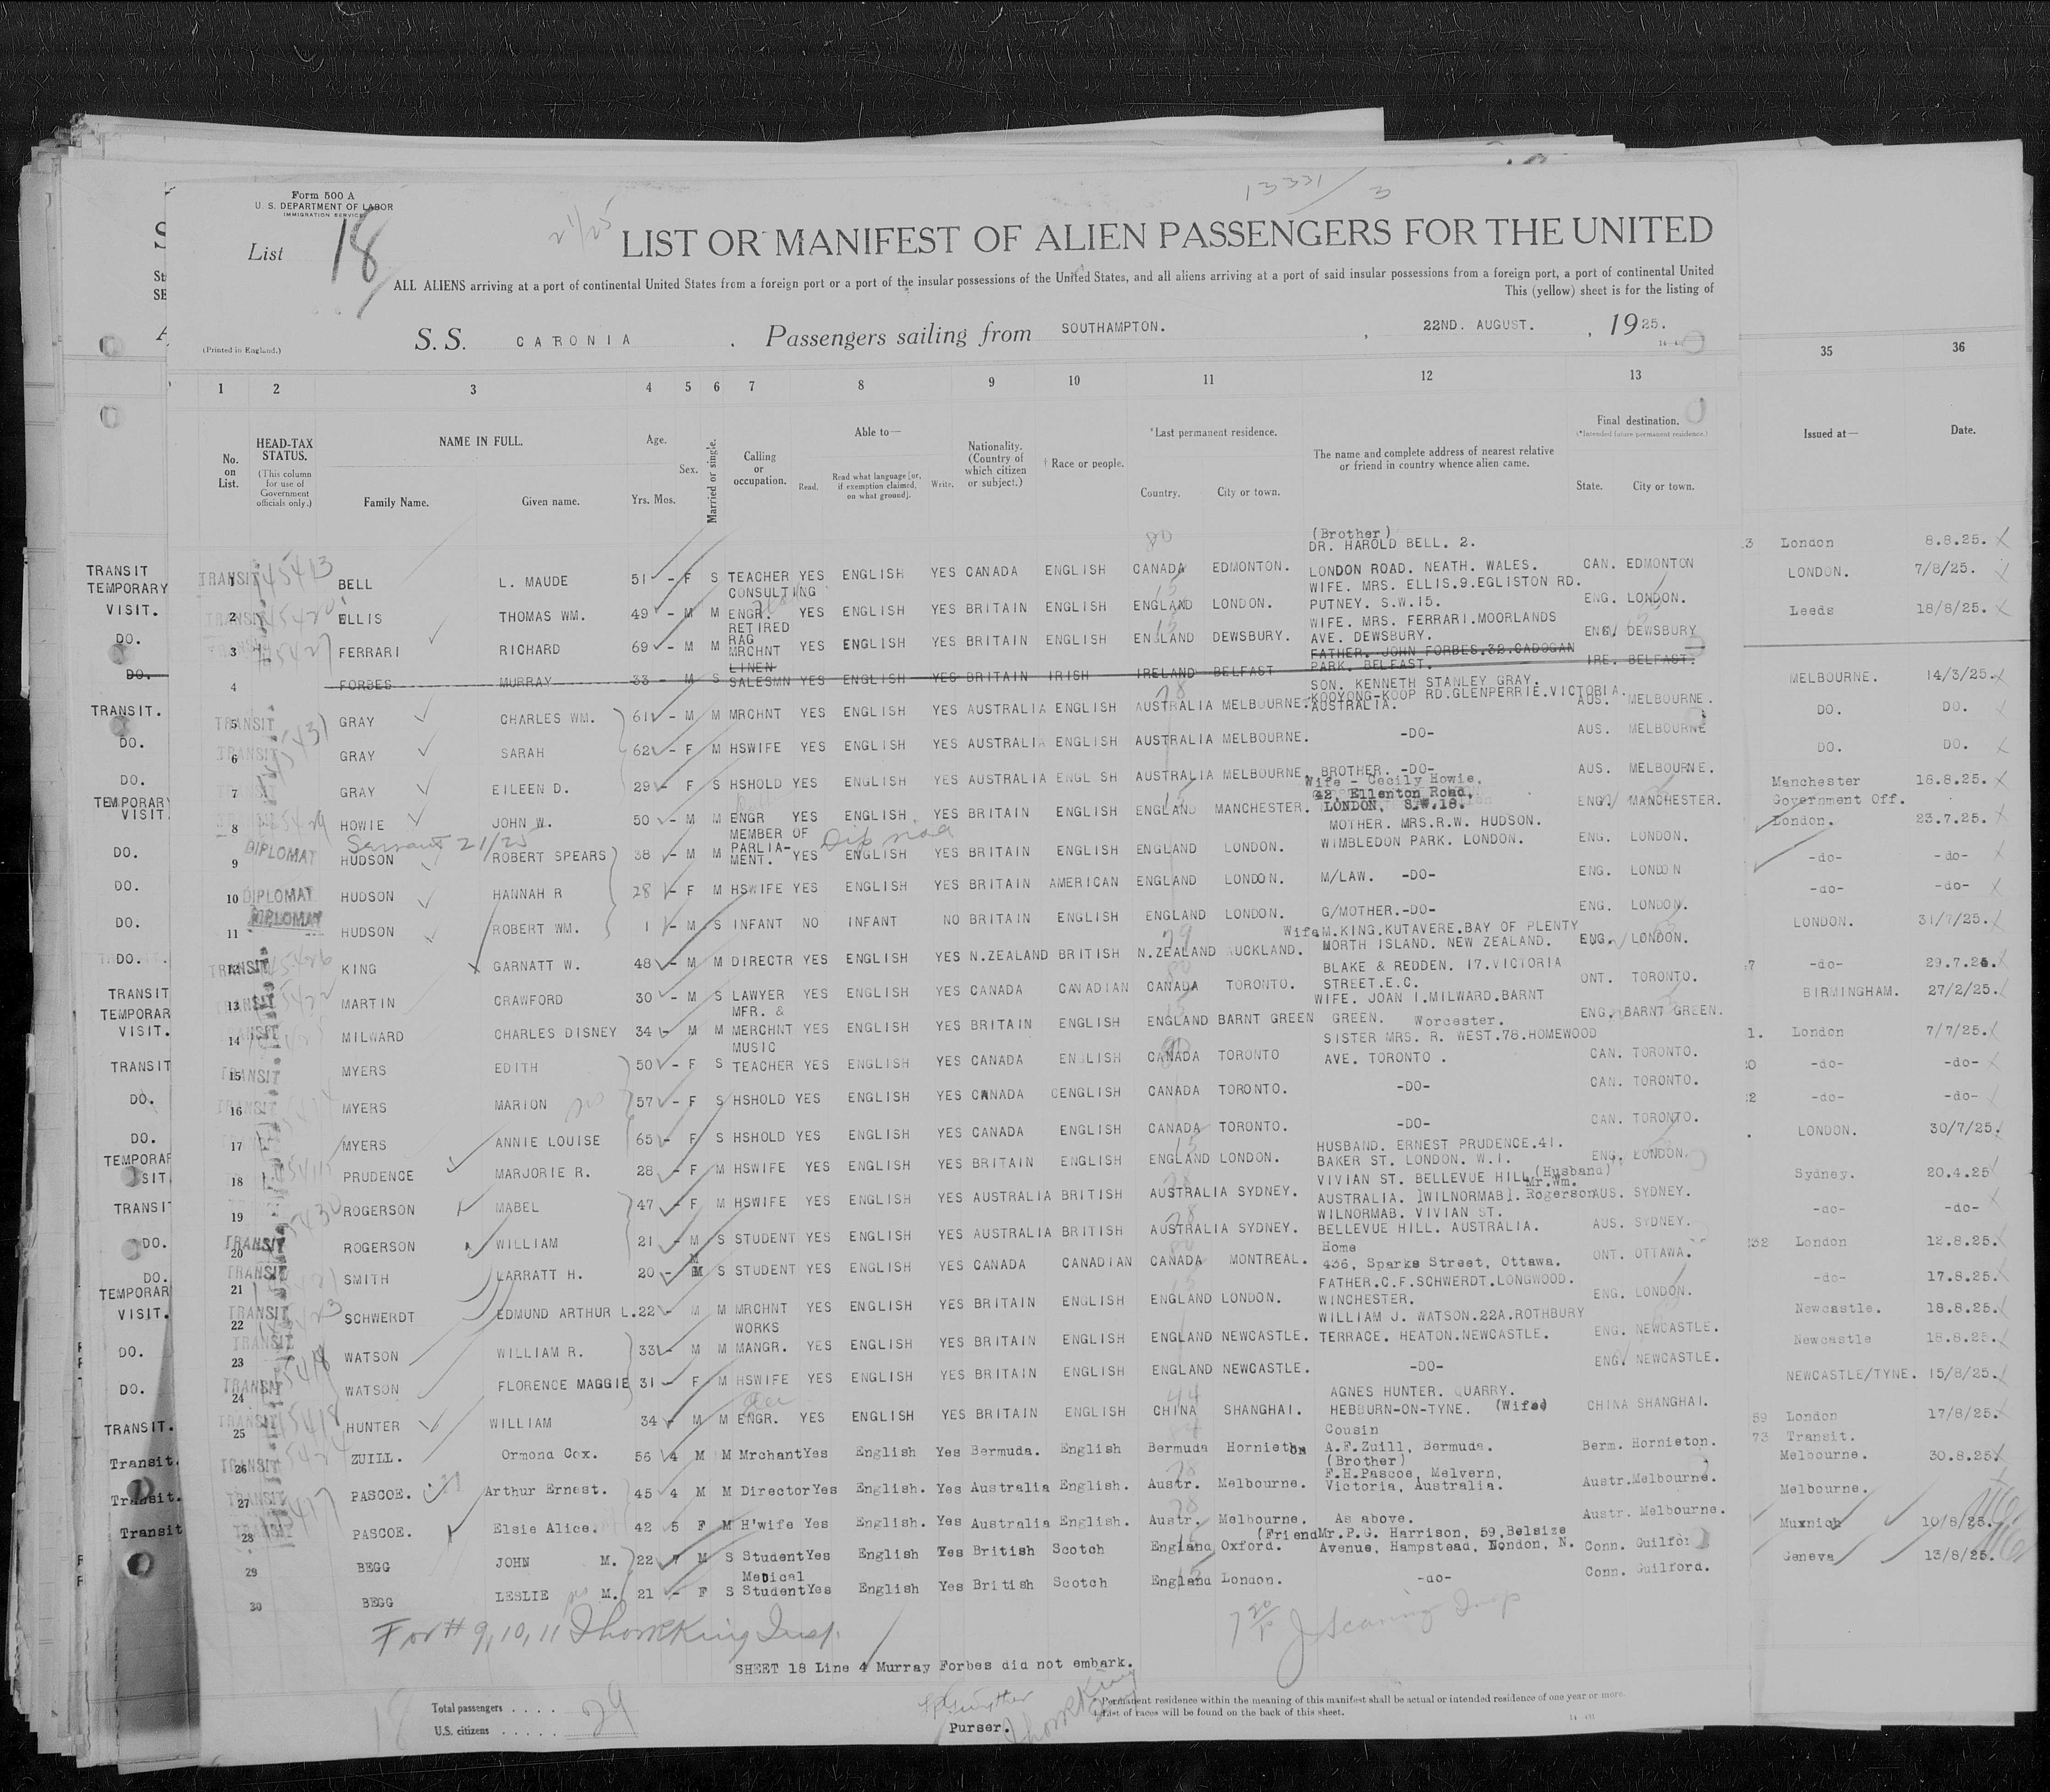 Form 500 A
U. S. DEPARTMENT OF LABOR
IMMIGRATION SERVICE
List 18
21/25
13331/3
LIST OR MANIFEST OF ALIEN PASSENGERS FOR THE UNITED
ALL ALIENS arriving at a port of continental United States from a foreign port or a port of the insular possessions of the United States, and all aliens arriving at a port of said insular possessions from a foreign port, a port of continental United
This (yellow) sheet is for the listing of
(Printed in England.)
S. S. CARONIA . Passengers sailing from SOUTHAMPTON. , 22ND. AUGUST. , 1925.
1 2 3 4 5 6 7 8 9 10 11 12 13 35 36
No. on List.
HEAD-TAX STATUS.
(This column for use of Government officials only.)
NAME IN FULL.
Family Name. Given name.
Age.
Yrs. Mos.
Sex.
Married or single.
Calling or occupation.
Able to—
Read. Read what language [or, if exemption claimed, on what ground]. Write.
Nationality. (Country of which citizen or subject.)
† Race or people.
*Last permanent residence.
Country. City or town.
The name and complete address of nearest relative or friend in country whence alien came.
Final destination.
(*Intended future permanent residence.)
State. City or town.
Issued at— Date.
TRANSIT 1 TRANSIT BELL L. MAUDE 51 - F S TEACHER YES ENGLISH YES CANADA ENGLISH CANADA EDMONTON. (Brother) DR. HAROLD BELL. 2. LONDON ROAD. NEATH. WALES. CAN. EDMONTON London 8.8.25.
TEMPORARY VISIT. 2 TRANSIT ELLIS THOMAS WM. 49 - M M CONSULTING ENGR. YES ENGLISH YES BRITAIN ENGLISH ENGLAND LONDON. WIFE. MRS. ELLIS.9.EGLISTON RD. PUTNEY. S.W.15. ENG. LONDON. LONDON. 7/8/25.
DO. 3 FERRARI RICHARD 69 - M M RETIRED RAG MRCHNT YES ENGLISH YES BRITAIN ENGLISH ENGLAND DEWSBURY. WIFE. MRS. FERRARI.MOORLANDS AVE. DEWSBURY. ENG. DEWSBURY Leeds 18/8/25.
DO. 4 FORBES MURRAY 33 - M S LINEN SALESMN YES ENGLISH YES BRITAIN IRISH IRELAND BELFAST FATHER. JOHN FORBES.32.CADOGAN PARK. BELFAST. IRE. BELFAST.
TRANSIT. 5 TRANSIT GRAY CHARLES WM. 61 - M M MRCHNT YES ENGLISH YES AUSTRALIA ENGLISH AUSTRALIA MELBOURNE. SON. KENNETH STANLEY GRAY. KOOYONG-KOOP RD.GLENPERRIE.VICTORIA. AUSTRALIA. AUS. MELBOURNE. MELBOURNE. 14/3/25.
DO. 6 TRANSIT GRAY SARAH 62 - F M HSWIFE YES ENGLISH YES AUSTRALIA ENGLISH AUSTRALIA MELBOURNE. -DO- AUS. MELBOURNE DO. DO.
DO. 7 GRAY EILEEN D. 29 - F S HSHOLD YES ENGLISH YES AUSTRALIA ENGL SH AUSTRALIA MELBOURNE. BROTHER. -DO- AUS. MELBOURNE. DO. DO.
TEMPORARY VISIT 8 HOWIE JOHN W. 50 - M M ENGR YES ENGLISH YES BRITAIN ENGLISH ENGLAND MANCHESTER. Wife - Cecily Howie. 42, Ellenton Road, LONDON, S.W.18. ENG. MANCHESTER. Manchester 18.8.25.
DO. 9 DIPLOMAT HUDSON ROBERT SPEARS 38 - M M MEMBER OF PARLIA-MENT. YES ENGLISH YES BRITAIN ENGLISH ENGLAND LONDON. MOTHER. MRS.R.W. HUDSON. WIMBLEDON PARK. LONDON. ENG. LONDON. Government Off. London. 23.7.25.
DO. 10 DIPLOMAT HUDSON HANNAH R 28 - F M HSWIFE YES ENGLISH YES BRITAIN AMERICAN ENGLAND LONDON. M/LAW. -DO- ENG. LONDON -do- -do-
DO. 11 DIPLOMAT HUDSON ROBERT WM. 1 - M S INFANT NO INFANT NO BRITAIN ENGLISH ENGLAND LONDON. G/MOTHER.-DO- ENG. LONDON. -do- -do-
DO. 12 TRANSIT KING GARNATT W. 48 - M M DIRECTR YES ENGLISH YES N.ZEALAND BRITISH N.ZEALAND AUCKLAND. Wife M.KING.KUTAVERE.BAY OF PLENTY NORTH ISLAND. NEW ZEALAND. ENG. LONDON. LONDON. 31/7/25.
TRANSIT 13 TRANSIT MARTIN CRAWFORD 30 - M S LAWYER YES ENGLISH YES CANADA CANADIAN CANADA TORONTO. BLAKE & REDDEN. 17.VICTORIA STREET.E.C. ONT. TORONTO. -do- 29.7.25.
TEMPORAR VISIT. 14 TRANSIT MILWARD CHARLES DISNEY 34 - M M MFR. & MERCHNT YES ENGLISH YES BRITAIN ENGLISH ENGLAND BARNT GREEN WIFE. JOAN I.MILWARD.BARNT GREEN. Worcester. ENG. BARNT GREEN. BIRMINGHAM. 27/2/25.
TRANSIT 15 TRANSIT MYERS EDITH 50 - F S MUSIC TEACHER YES ENGLISH YES CANADA ENGLISH CANADA TORONTO SISTER MRS. R. WEST.78.HOMEWOOD AVE. TORONTO . CAN. TORONTO. London 7/7/25.
DO. 16 MYERS MARION 57 - F S HSHOLD YES ENGLISH YES CANADA CENGLISH CANADA TORONTO. -DO- CAN. TORONTO. -do- -do-
DO. 17 MYERS ANNIE LOUISE 65 - F S HSHOLD YES ENGLISH YES CANADA ENGLISH CANADA TORONTO. -DO- CAN. TORONTO. -do- -do-
TEMPORAR SIT 18 PRUDENCE MARJORIE R. 28 - F M HSWIFE YES ENGLISH YES BRITAIN ENGLISH ENGLAND LONDON. HUSBAND. ERNEST PRUDENCE.41. BAKER ST. LONDON. W.1. ENG. LONDON. LONDON. 30/7/25.
TRANSIT 19 ROGERSON MABEL 47 - F M HSWIFE YES ENGLISH YES AUSTRALIA BRITISH AUSTRALIA SYDNEY. VIVIAN ST. BELLEVUE HILL (Husband) Mr.Wm. Rogerson AUSTRALIA. ]WILNORMAB]. AUS. SYDNEY. Sydney. 20.4.25
DO. 20 TRANSIT ROGERSON WILLIAM 21 - M S STUDENT YES ENGLISH YES AUSTRALIA BRITISH AUSTRALIA SYDNEY. WILNORMAB. VIVIAN ST. BELLEVUE HILL. AUSTRALIA. AUS. SYDNEY. -do- -do-
DO. 21 TRANSIT SMITH LARRATT H. 20 - M S STUDENT YES ENGLISH YES CANADA CANADIAN CANADA MONTREAL. Home 436, Sparks Street, Ottawa. ONT. OTTAWA. London 12.8.25.
TEMPORAR VISIT. 22 TRANSIT SCHWERDT EDMUND ARTHUR L. 22 - M M MRCHNT YES ENGLISH YES BRITAIN ENGLISH ENGLAND LONDON. FATHER.C.F.SCHWERDT.LONGWOOD. WINCHESTER. ENG. LONDON. -do- 17.8.25.
DO. 23 TRANSIT WATSON WILLIAM R. 33 - M M WORKS MANGR. YES ENGLISH YES BRITAIN ENGLISH ENGLAND NEWCASTLE. WILLIAM J. WATSON.22A.ROTHBURY TERRACE. HEATON.NEWCASTLE. ENG. NEWCASTLE. Newcastle. 18.8.25.
DO. 24 TRANSIT WATSON FLORENCE MAGGIE 31 - F M HSWIFE YES ENGLISH YES BRITAIN ENGLISH ENGLAND NEWCASTLE. -DO- ENG. NEWCASTLE. Newcastle 18.8.25.
TRANSIT. 25 TRANSIT HUNTER WILLIAM 34 - M M ENGR. YES ENGLISH YES BRITAIN ENGLISH CHINA SHANGHAI. AGNES HUNTER. QUARRY. HEBBURN-ON-TYNE. (Wife) CHINA SHANGHAI. NEWCASTLE/TYNE. 15/8/25.
Transit. 26 TRANSIT ZUILL. Ormond Cox. 56 4 M M Mrchant Yes English Yes Bermuda. English Bermuda Hornieton Cousin A.F.Zuill, Bermuda. Berm. Hornieton. London 17/8/25.
Transit. 27 TRANSIT PASCOE. Arthur Ernest. 45 4 M M Director Yes English. Yes Australia English. Austr. Melbourne. (Brother) F.H.Pascoe, Melvern, Victoria, Australia. Austr. Melbourne. Transit. Melbourne. 30.8.25.
Transit 28 TRANSIT PASCOE. Elsie Alice. 42 5 F M H'wife Yes English. Yes Australia English. Austr. Melbourne. As above. Austr. Melbourne. Melbourne.
29 BEGG JOHN M. 22 7 M S Student Yes English Yes British Scotch England Oxford. (Friend Mr.P.G. Harrison, 59,Belsize Avenue, Hampstead, London, N. Conn. Guilfor Munich 10/8/25.
30 BEGG LESLIE M. 21 - F S Medical Student Yes English Yes British Scotch England London. -do- Conn. Guilford. Geneva 13/8/25.
For # 9, 10, 11
SHEET 18 Line 4 Murray Forbes did not embark.
Total passengers . . . . 29
U.S. citizens . . . . .
Purser.
* Permanent residence within the meaning of this manifest shall be actual or intended residence of one year or more.
† List of races will be found on the back of this sheet.